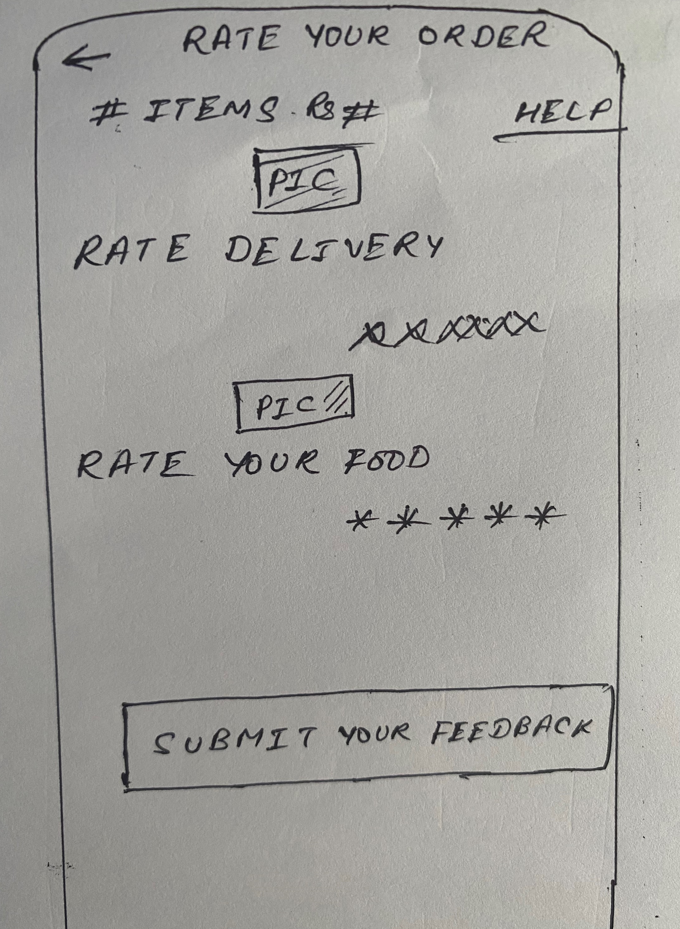 ← RATE YOUR ORDER
# ITEMS . Rs # HELP
PIC
RATE DELIVERY
PIC
RATE YOUR FOOD
* * * * *
SUBMIT YOUR FEEDBACK